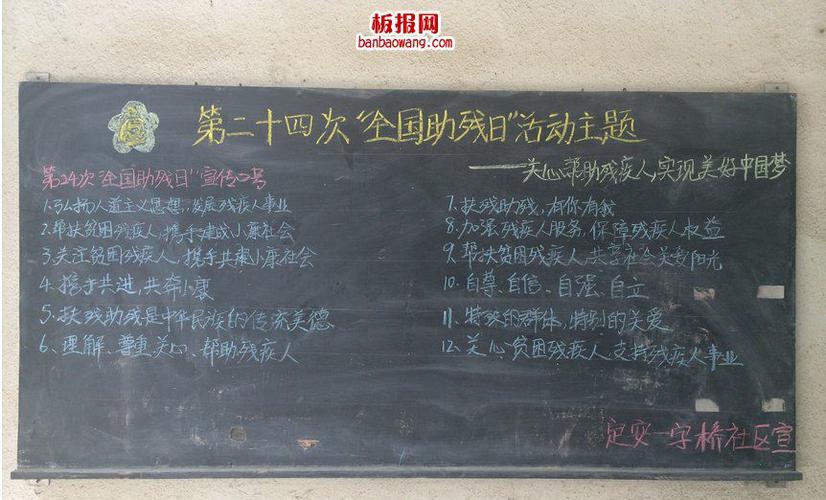 板报网
banbaowang.com
第二十四次"全国助残日"活动主题
——关心帮助残疾人,实现美好中国梦
第24次"全国助残日"宣传口号
1.弘扬人道主义思想,发展残疾人事业
2.帮扶贫困残疾人,携手建成小康社会
3.关注贫困残疾人,携手共建小康社会
4.携手共进,共奔小康
5.扶残助残是中华民族的传统美德
6、理解、尊重、关心、帮助残疾人
7.扶残助残,有你有我
8.加强残疾人服务,保障残疾人权益
9.帮扶贫困残疾人,共享社会关爱阳光
10.自尊、自信、自强、自立
11.特殊的群体,特别的关爱
12.关心贫困残疾人,支持残疾人事业
定安一字桥社区宣